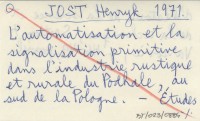 Q JOST Henryk 1971.
L'automatisation et la
signalisation primitive
dans l'industrie rustique
et rurale du Podhale, au
sud de la Pologne. - Études